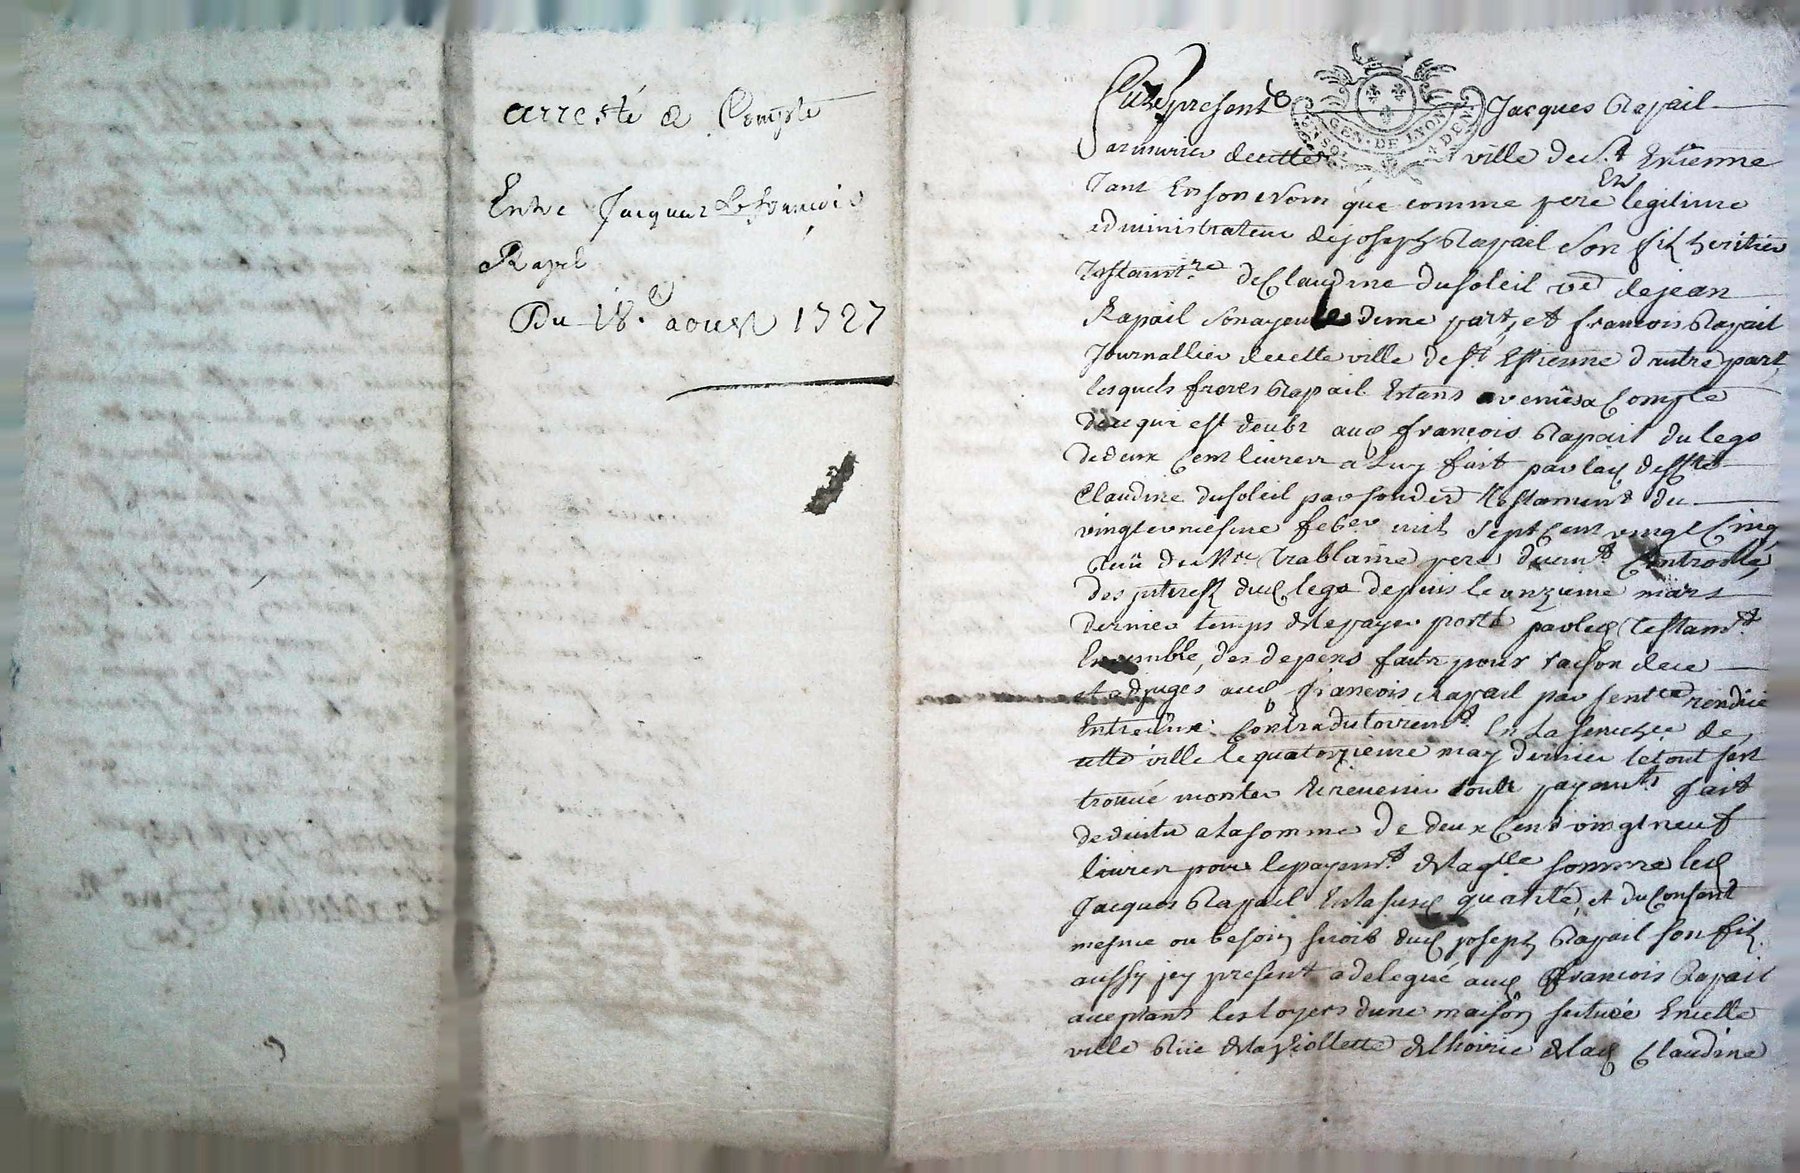 arresté de Compte
Entre Jacques & françois
Rapel
Du 18.e aoust 1727
GEN. DE LYON
UN SOL 4 DEN
present Jacques Rapail
armurier de cette ville de St Estienne
tant En son nom que comme pere Et legitime
administrateur de joseph Rapail son fils heritier
de Claudine dusoleil ve de jean
Rapail son ayeule dune part, et francois Rapail
Journallier de cette ville de st Estienne dautre part
lesquels freres Rapail Estans venus a Compte
de ce qui est deub aud francois Rapail du legs
de deux Cent livres a Luy fait par lad deffte
Claudine dusoleil par son der testament du
febver mil sept Cent vingt Cinq
Receu du Me Trablaine pere controllé
des jnterest dud legs depuis le unzieme mars
dernier temps de payer porté par led testamt
Ensemble, des depens faits pour raison de ce
et adjugés aud francois Rapail par sentce rendüe
Entreeux contradictoiremt En la senechee de
cette ville le quatorzieme may dernier le tout sest
trouvé monter toute payemts fait
deduite a la somme de deux Cent vingt neuf
livres pour le payemt de laqlle somme led
Jacques Rapail En lasusd qualité, et du Consent
mesme ou besoin seroit dud joseph Rapail son fils
aussy jcy present a delegué aud francois Rapail
aceptant les loyers dune maison scituée En cette
ville Rüe de la Viollette de lhoirie de lad Claudine